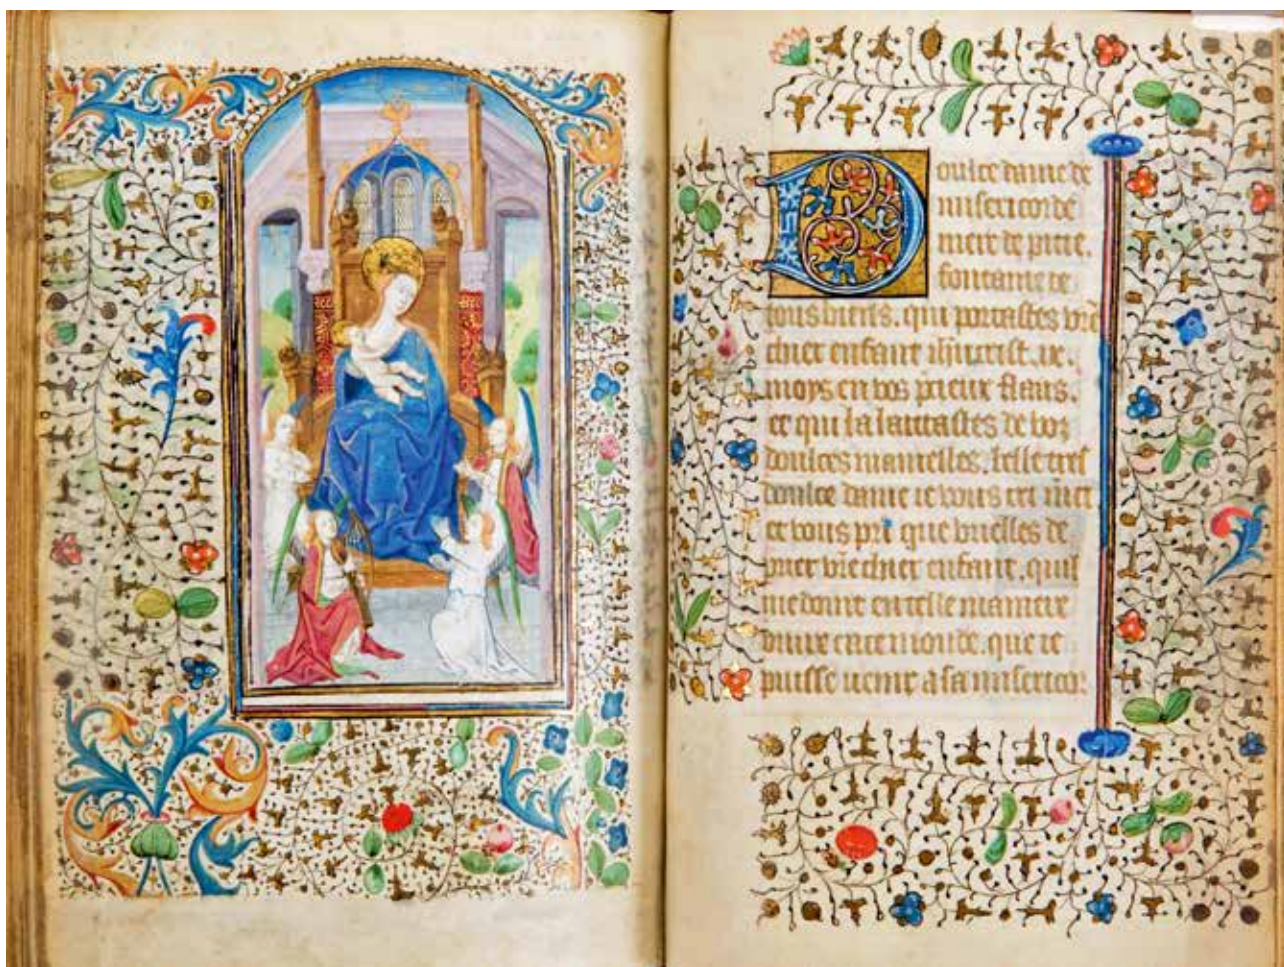 Doulce dame de
misericorde
mere de pitie.
fontaine de
tous biens. qui portastes vre
chier enfant ihucrist. ix.
moys en vos flans.
et qui lalaitastes de voz
doulces mamelles. belle tres
doulce dame ie vous cri
et vous pri que vuelles de
prier vre chier enfant. quil
me doint en telle maniere
viure en ce monde. que ie
puisse uenir a sa misericor